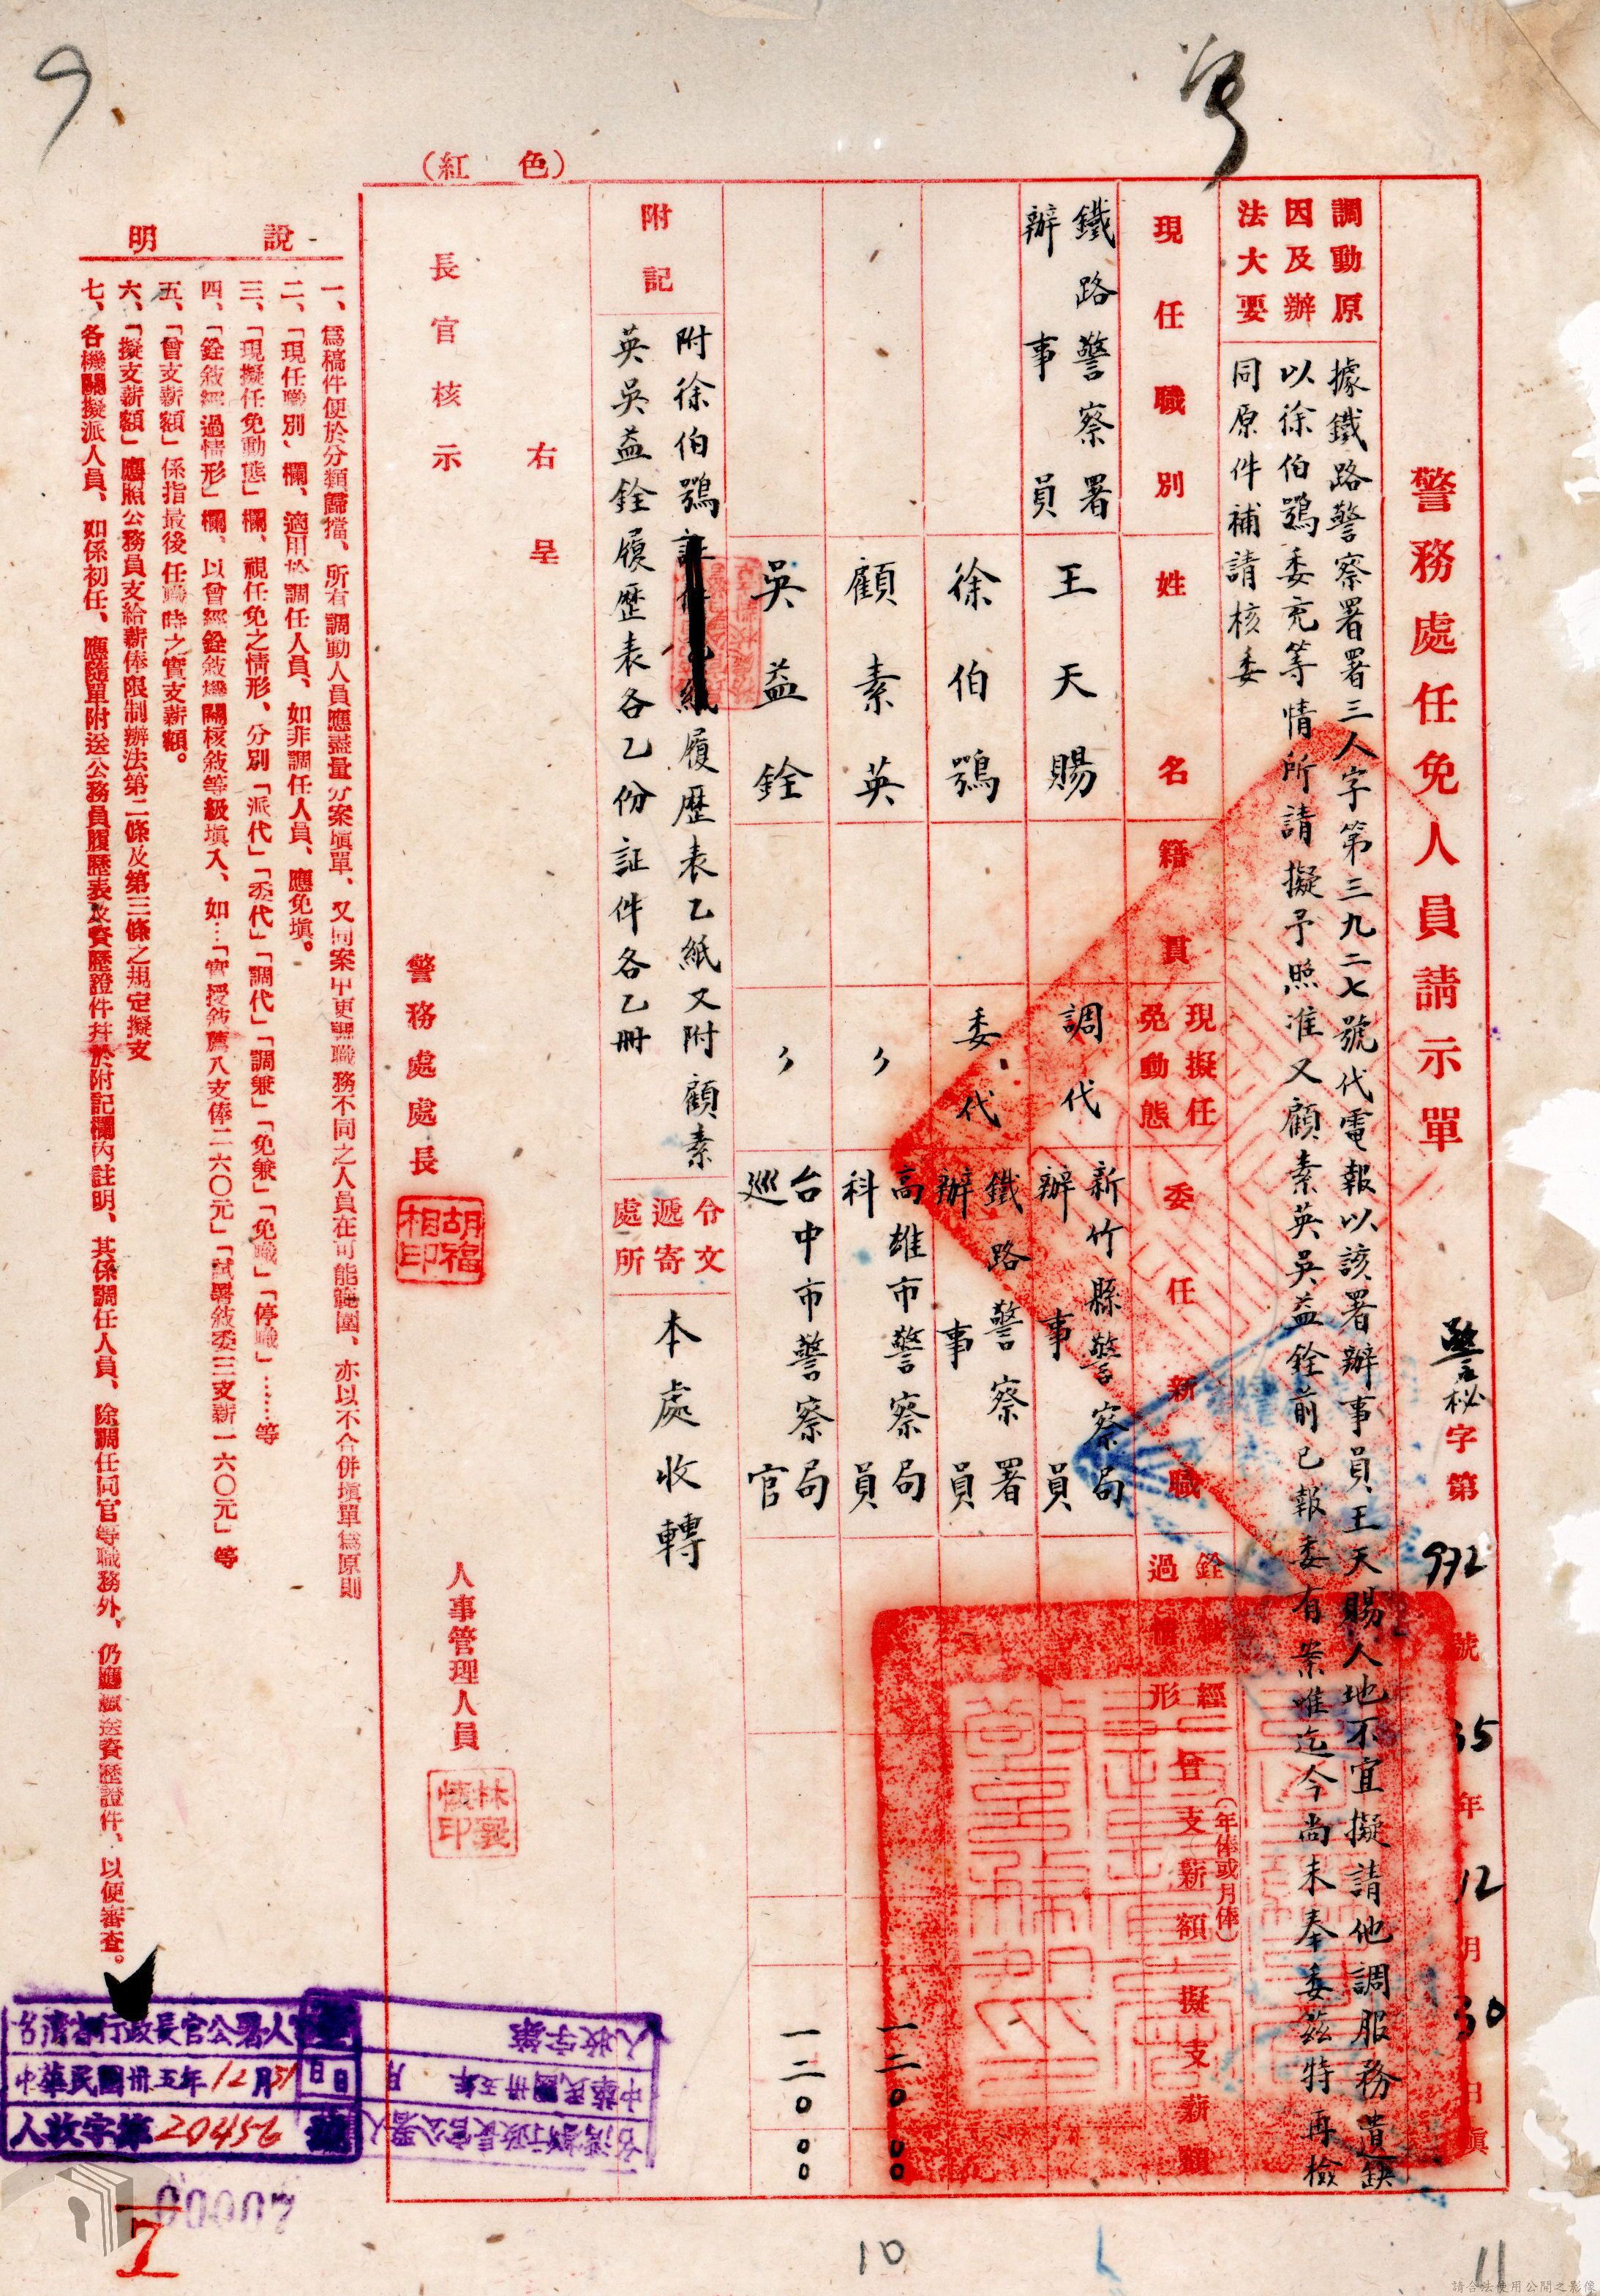 (紅 色)
警務處任免人員請示單
警秘字第972號 35年12月30日填
調動原因及辦法大要
據鐵路警察署署三人字第三九二七號代電報以該署辦事員王天賜人地不宜擬請他調服務遺缺
以徐伯鶚委充等情所請擬予照准又顧素英吳益銓前已報委有案惟迄今尚未奉委茲特再檢
同原件補請核委
現任職別
姓名
籍貫
現擬任免動態
委任新職
銓敘經過情形
曾支薪額(年俸或月俸)
擬支薪額
鐵路警察署辦事員 王天賜 調代 新竹縣警察局辦事員
徐伯鶚 委代 鐵路警察署辦事員
顧素英 〃 高雄市警察局科員 一二〇 〇〇
吳益銓 〃 台中市警察局巡官 一二〇 〇〇
附記
附徐伯鶚履歷表乙紙又附顧素
英吳益銓履歷表各乙份証件各乙冊
令文遞寄處所
本處收轉
右呈
長官核示
警務處處長
胡福相印
人事管理人員
林襄懷印
說明
一、為稿件便於分類歸擋、所有調動人員應盡量分案填單、又同案中更調職務不同之人員在可能範圍、亦以不合併填單為原則
二、「現任職別」欄、適用於調任人員、如非調任人員、應免填。
三、「現擬任免動態」欄、視任免之情形、分別「派代」「委代」「調代」「調兼」「免兼」「免職」「停職」……等
四、「銓敘經過情形」欄、以曾經銓敘機關核敘等級填入、如…「實授敘薦八支俸二六〇元」「試署敘委三支薪一六〇元」等
五、「曾支薪額」係指最後任職時之實支薪額。
六、「擬支薪額」應照公務員支給薪俸限制辦法第二條及第三條之規定擬支
七、各機關擬派人員、如係初任、應隨單附送公務員履歷表及資歷證件并於附記欄內註明、其係調任人員、除調任同官等職務外、仍應檢送資歷證件、以便審查。
台灣省行政長官公署人事室
中華民國卅五年12月31日
人收字第20456號
人收字第
中華民國卅五年 月
台灣省行政長官公署人
00007
10
11
請合法使用公開之影像